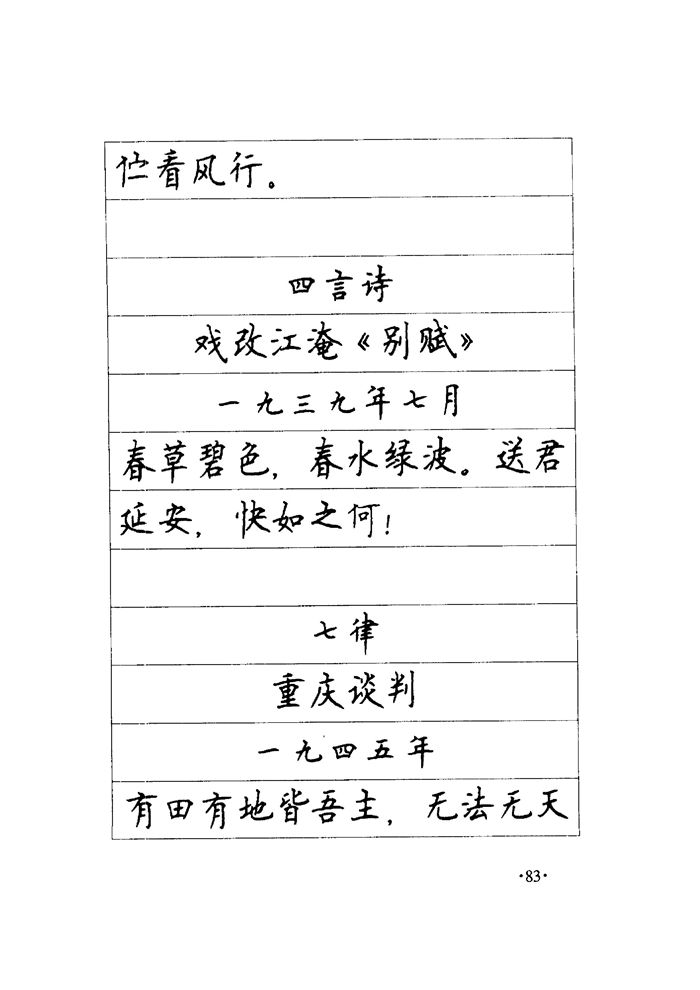 伫看风行。
四言诗
戏改江淹《别赋》
一九三九年七月
春草碧色，春水绿波。送君
延安，快如之何！
七律
重庆谈判
一九四五年
有田有地皆吾主，无法无天
·83·